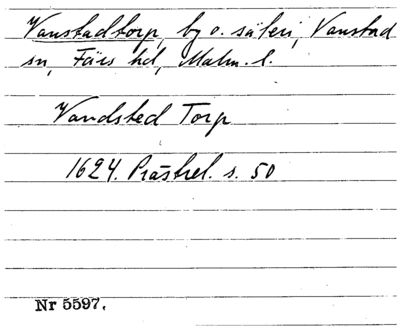 Vanstadtorp, by o. säteri, Vanstad
sn, Färs hd, Malm. l.
Vandsted Torp
1624. Prästrel. s. 50
Nr 5597.